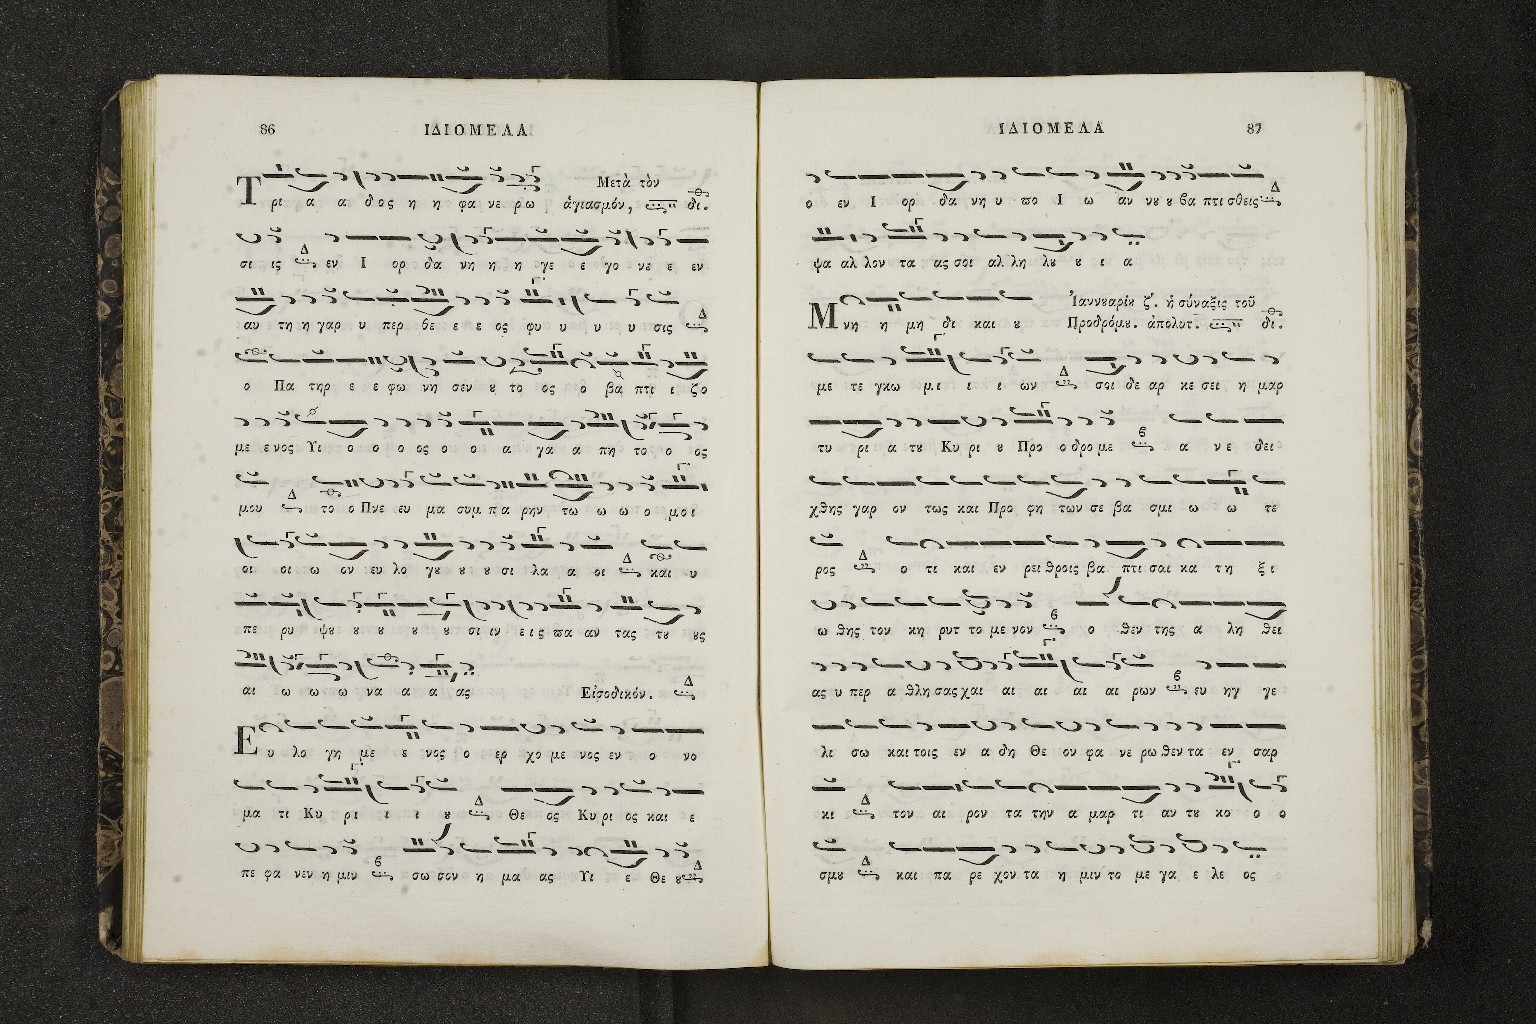 86 ΙΔΙΟΜΕΛΑ
Μετὰ τὸν
Τ ρι α α δος η η φα νε ρω ἁγιασμόν, δι.
σι ις Δ εν Ι ορ δα νη η η γε ε γο νε ε εν
αυ τη η γαρ υ περ θε ε ε ος φυ υ υ υ σις Δ
ο Πα τηρ ε ε φω νη σεν ȣ το ος ο βα πτι ι ζο
με ε νος Υι ο ο ο ος ο ο α γα α πη το ο ος
μου Δ το ο Πνε ευ μα συμ πα ρην τω ω ω ο μοι
οι οι ω ον ευ λο γȣ ȣ ȣ σι λα α οι Δ και υ
πε ρυ ψȣ ȣ ȣ ȣ ȣ σι ιν εις πα αν τας τȣ ȣς
αι ω ω ω να α α ας Εἰσοδικόν. Δ
Ε υ λο γη με ε νος ο ερ χο με νος εν ο νο
μα τι Κυ ρι ι ι ȣ Δ Θε ος Κυ ρι ος και ε
πε φα νεν η μιν ϐ σω σον η μα ας Υι ε Θε ȣ Δ
ΙΔΙΟΜΕΛΑ 87
ο εν Ι ορ δα νη υ πο Ι ω αν νȣ ȣ βα πτι σθεις Δ
ψα αλ λον τα ας σοι αλ λη λȣ ȣ ι α
Ἰαννȣαρίȣ ζ'. ἡ σύναξις τοῦ
Μ νη η μη δι και ȣ Προδρόμȣ. ἀπολυτ. δι.
με τε γκω μι ι ι ων Δ σοι δε αρ κε σει η μαρ
τυ ρι α τȣ Κυ ρι ȣ Προ ο δρο με ϐ α νε δει
χθης γαρ ον τως και Προ φη των σε βα σμι ω ω τε
ρος Δ ο τι και εν ρει θροις βα πτι σαι κα τη ξι
ω θης τον κη ρυτ το με νον ϐ ο θεν της α λη θει
ας υ περ α θλη σας χαι αι αι αι αι ρων ϐ ευ ηγ γε
λι σω και τοις εν α δη Θε ον φα νε ρω θεν τα εν σαρ
κι Δ τον αι ρον τα την α μαρ τι αν τȣ κο ο ο
σμȣ Δ και πα ρε χον τα η μιν το με γα ε λε ος